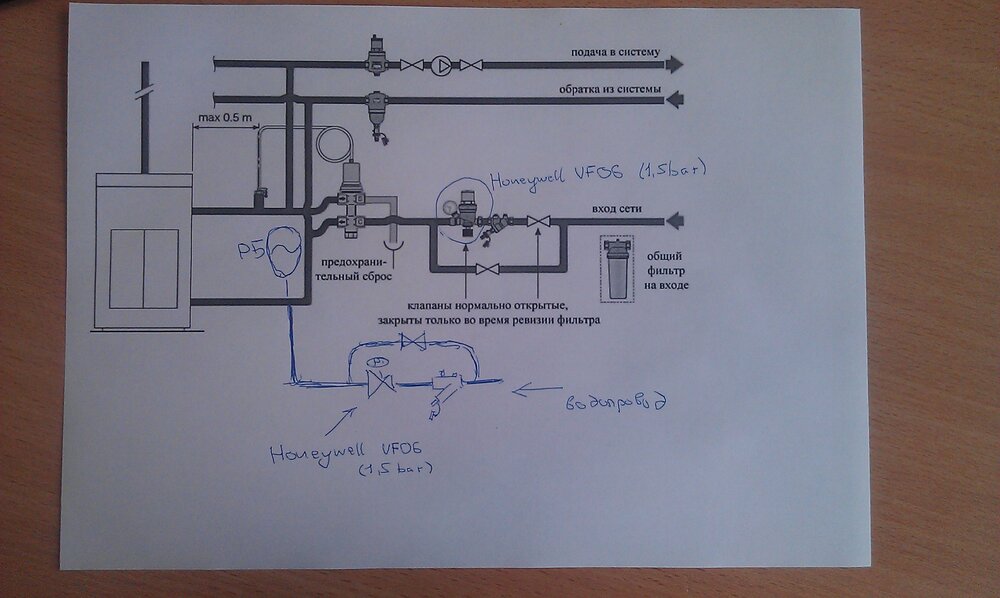 подача в систему
обратка из системы
max 0.5 m
Honeywell VF06 (1,5bar)
вход сети
P5
предохрани-
тельный сброс
общий
фильтр
на входе
клапаны нормально открытые,
закрыты только во время ревизии фильтра
водопровод
Honeywell VF06
(1,5 bar)